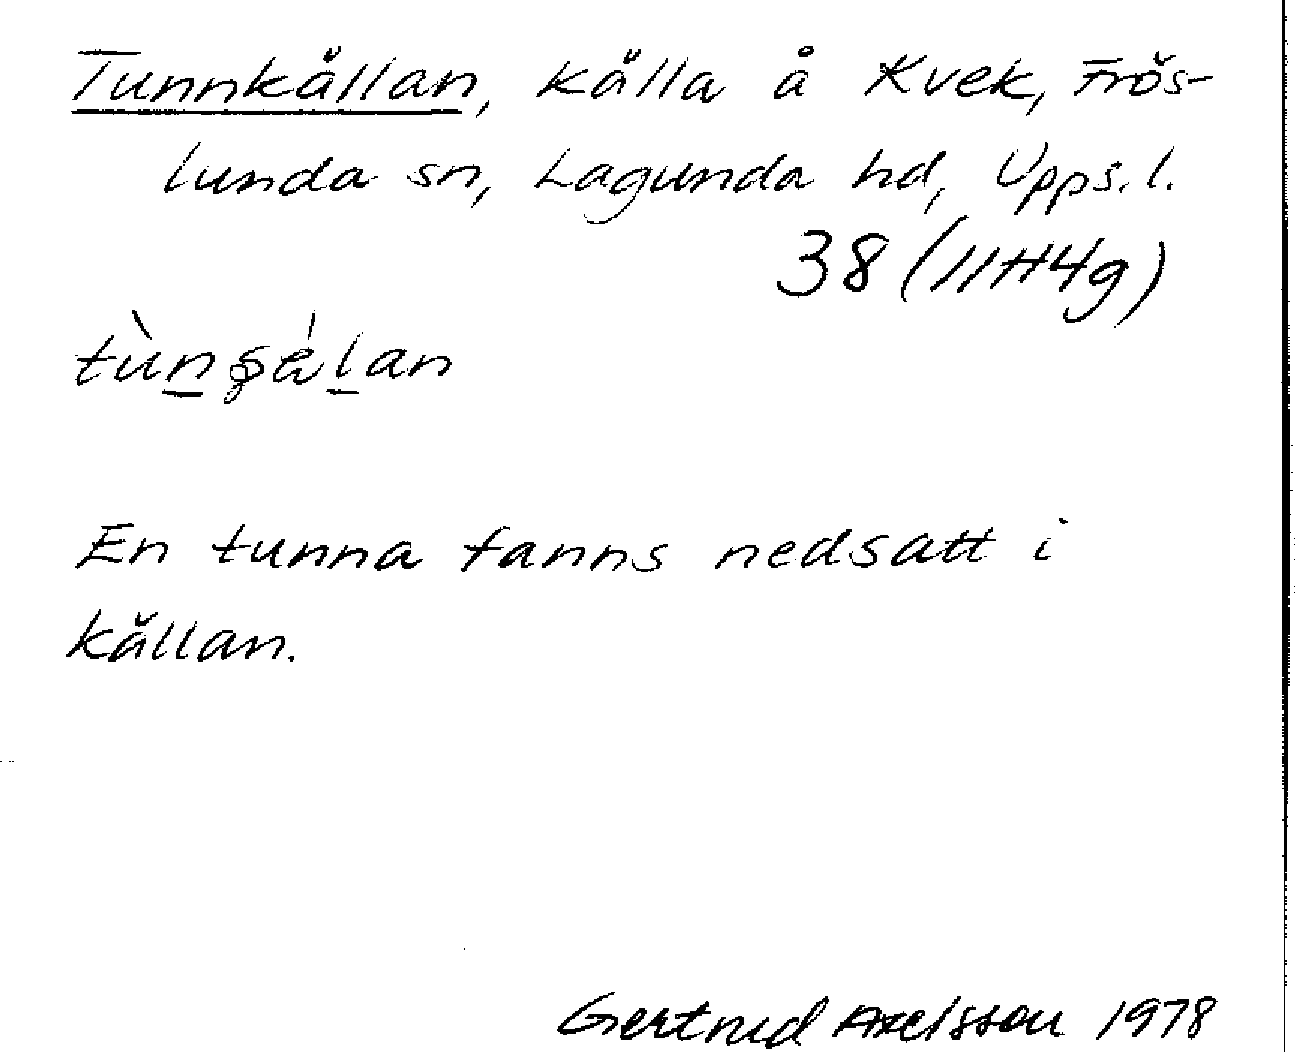 Tunnkällan, källa å Kvek, Frös-
lunda sn, Lagunda hd, Upps. l.
38 (11H4g)
tùn̲ʂä́l̲an
En tunna fanns nedsatt i
källan.
Gertrud Axelsson 1978